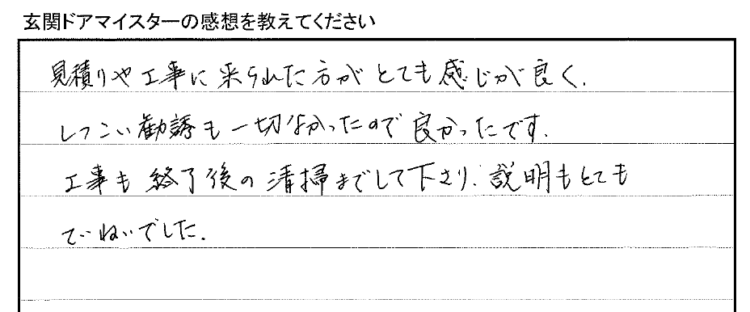 玄関ドアマイスターの感想を教えてください
見積りや工事に来られた方がとても感じが良く、
しつこい勧誘も一切なかったので良かったです。
工事も終了後の清掃までして下さり、説明もとても
ていねいでした。